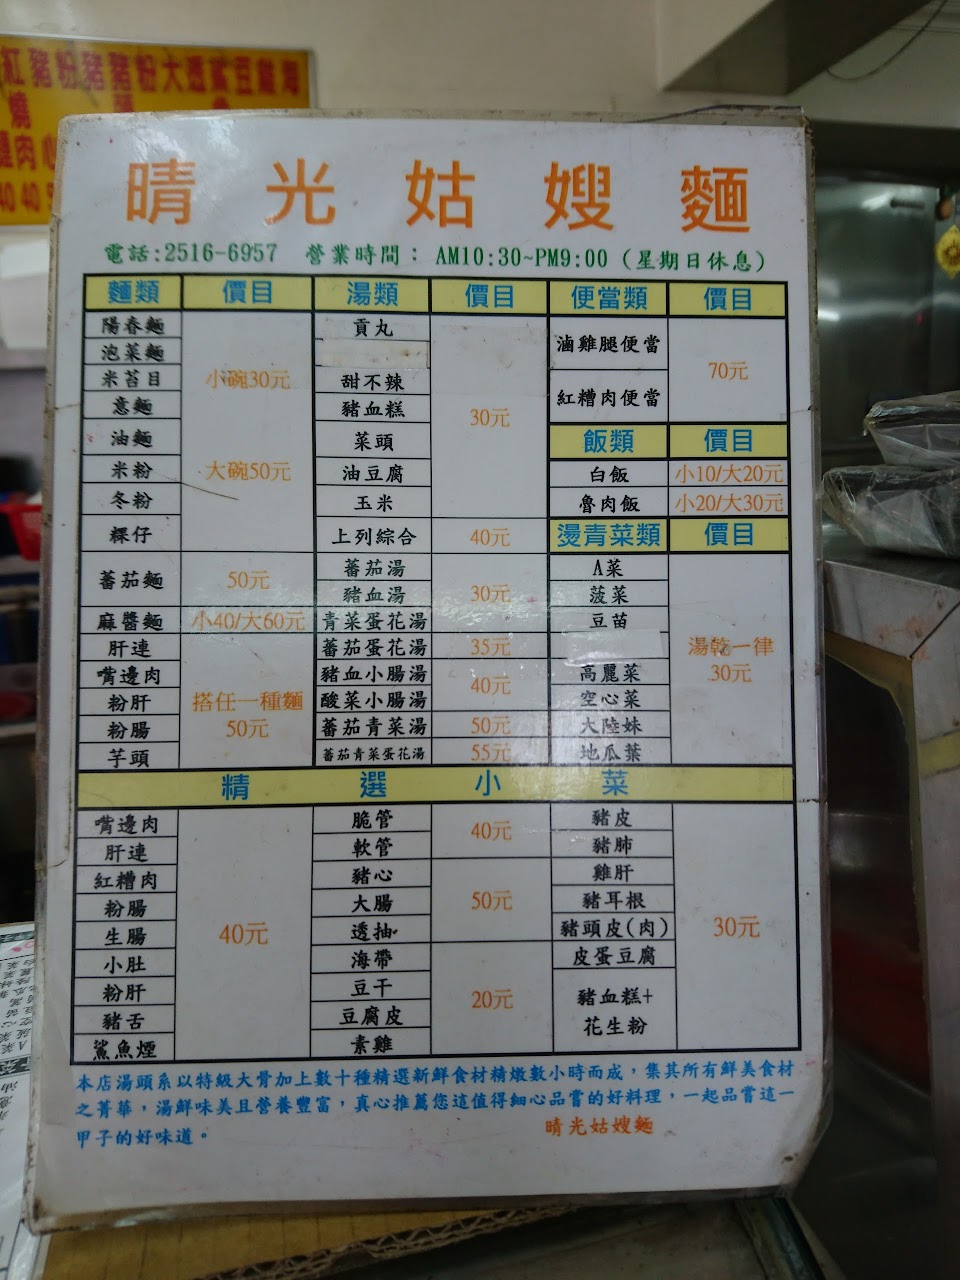 紅豬粉豬豬粉大透鯊豆雞海
燒
肉心
40 40
晴光姑嫂麵
電話:2516-6957 營業時間： AM10:30~PM9:00 (星期日休息)
麵類 價目 湯類 價目 便當類 價目
陽春麵
泡菜麵
米苔目
意麵
油麵
米粉
冬粉
粿仔
小碗30元
大碗50元
蕃茄麵 50元
麻醬麵 小40/大60元
肝連
嘴邊肉
粉肝
粉腸
芋頭
搭任一種麵
50元
貢丸
甜不辣
豬血糕
菜頭
油豆腐
玉米
30元
上列綜合 40元
蕃茄湯
豬血湯
青菜蛋花湯
30元
蕃茄蛋花湯 35元
豬血小腸湯
酸菜小腸湯
40元
蕃茄青菜湯 50元
蕃茄青菜蛋花湯 55元
滷雞腿便當
紅糟肉便當
70元
飯類 價目
白飯 小10/大20元
魯肉飯 小20/大30元
燙青菜類 價目
A菜
菠菜
豆苗
高麗菜
空心菜
大陸妹
地瓜葉
湯乾一律
30元
精選小菜
嘴邊肉
肝連
紅糟肉
粉腸
生腸
小肚
粉肝
豬舌
鯊魚煙
40元
脆管
軟管
40元
豬心
大腸
透抽
50元
海帶
豆干
豆腐皮
素雞
20元
豬皮
豬肺
雞肝
豬耳根
豬頭皮(肉)
皮蛋豆腐
豬血糕+
花生粉
30元
本店湯頭系以特級大骨加上數十種精選新鮮食材精燉數小時而成，集其所有鮮美食材
之菁華，湯鮮味美且營養豐富，真心推薦您這值得細心品嘗的好料理，一起品嘗這一
甲子的好味道。
晴光姑嫂麵